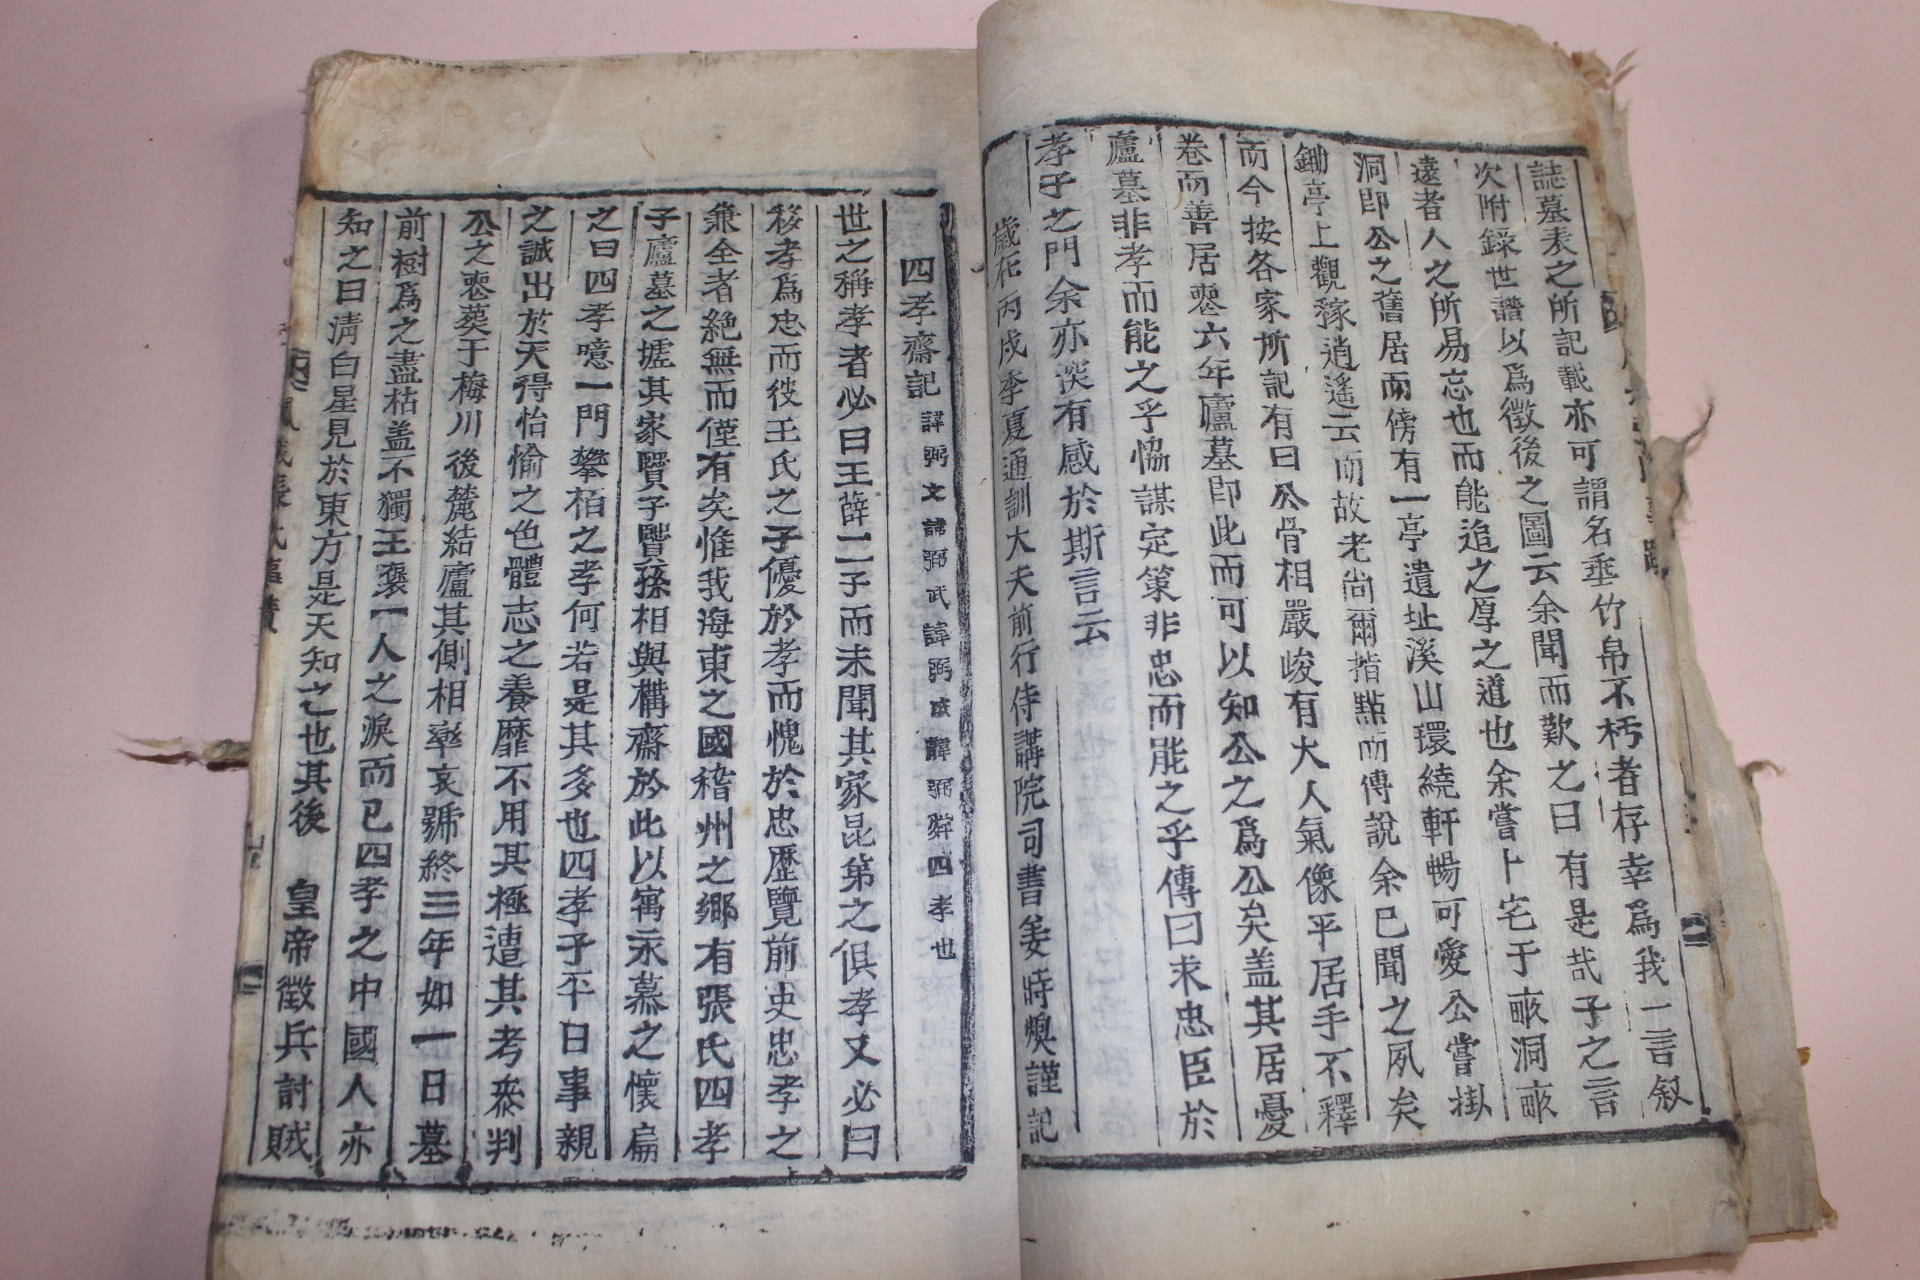 誌墓表之所記載亦可謂名垂竹帛不朽者存幸爲我一言叙
次附錄世譜以爲徵後之圖云余聞而歎之曰有是哉子之言
遠者人之所易忘也而能追之厚之道也余嘗卜宅于畝洞畝
洞卽公之舊居而傍有一亭遺址溪山環繞軒暢可愛公嘗掛
鋤亭上觀稼逍遙云而故老尚爾指點而傳說余已聞之夙矣
而今按各家所記有曰公骨相嚴峻有大人氣像平居手不釋
卷而善居喪六年廬墓卽此而可以知公之爲公矣盖其居憂
廬墓非孝而能之乎恊謀定策非忠而能之乎傳曰求忠臣於
孝子之門余亦深有感於斯言云
歲在丙戌季夏通訓大夫前行侍講院司書姜時煥謹記
四孝齋記 諱弼文諱弼武諱弼成諱弼舜四孝也
世之稱孝者必曰王薛二子而未聞其家昆第之俱孝又必曰
移孝爲忠而彼王氏之子優於孝而愧於忠歷覽前史忠孝之
兼全者絶無而僅有矣惟我海東之國稽州之鄉有張氏四孝
子廬墓之墟其家賢子賢孫相與構齋於此以寓永慕之懷扁
之曰四孝噫一門攀栢之孝何若是其多也四孝子平日事親
之誠出於天得怡愉之色體志之養靡不用其極遭其考叅判
公之喪葬于梅川後麓結廬其側相率哀號終三年如一日墓
前樹爲之盡枯盖不獨王裒一人之淚而已四孝之中國人亦
知之曰淸白星見於東方是天知之也其後 皇帝徵兵討賊